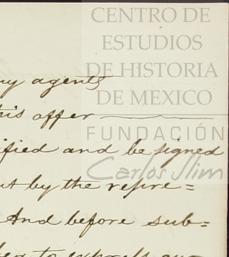 CENTRO DE
ESTUDIOS
DE HISTORIA
DE MEXICO
FUNDACIÓN
Carlos Slim
my agents
his offer
ified and be signed
t by the repre=
And before sub=
to express